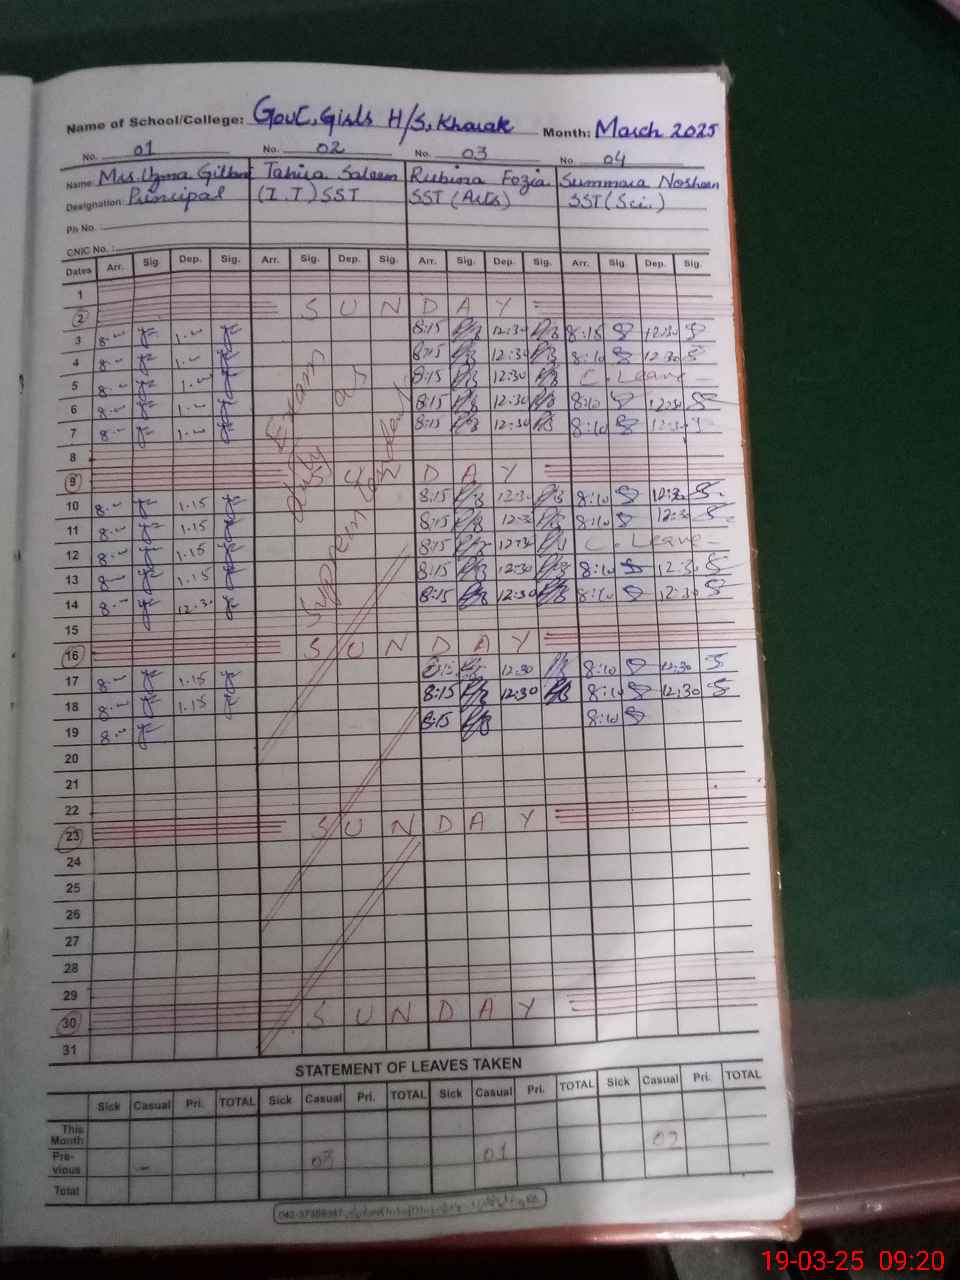 Name of School/College: Govt, Girls H/S, Kharak Month: March 2025
No. 01 No. 02 No. 03 No. 04
Name: Mrs. Uzma Tahira Saleem Rubina Fozia Summara Nosheen
Designation: Principal (I.T) SST SST (Arts) SST (Sci.)
Ph No.
CNIC No. :
Dates Arr. Sig. Dep. Sig. Arr. Sig. Dep. Sig. Arr. Sig. Dep. Sig. Arr. Sig. Dep. Sig.
1
2 S U N D A Y
3 8.- 1.- 8:15 12:30 8:15 12:30
4 8.- 1.- 8:15 12:30 8:10 12:30
5 8.- 1.- 8:15 12:30 C. Leave -
6 8.- 1.- 8:15 12:30 8:10 12:30
7 8.- 1.- 8:15 12:30 8:10 12:30
Exam duty as
8
9 S D A Y
10 8.- 1.15 8:15 12:30 8:10 12:30
11 8.- 1.15 8:15 12:30 8:10 12:30
12 8.- 1.15 8:15 12:30 C. Leave -
13 8.- 1.15 8:15 12:30 8:10 12:30
14 8.- 12.30 8:15 12:30 8:10 12:30
15
16 S U N D A Y
17 8.- 1.15 8:15 12:30 8:10 12:30
18 8.- 1.15 8:15 12:30 8:10 12:30
19 8.- 8:15 8:10
20
21
22
23 S U N D A Y
24
25
26
27
28
29
30 S U N D A Y
31
STATEMENT OF LEAVES TAKEN
Sick Casual Pri. TOTAL Sick Casual Pri. TOTAL Sick Casual Pri. TOTAL Sick Casual Pri. TOTAL
This Month 02
Pre-vious - 03 01
Total
19-03-25 09:20